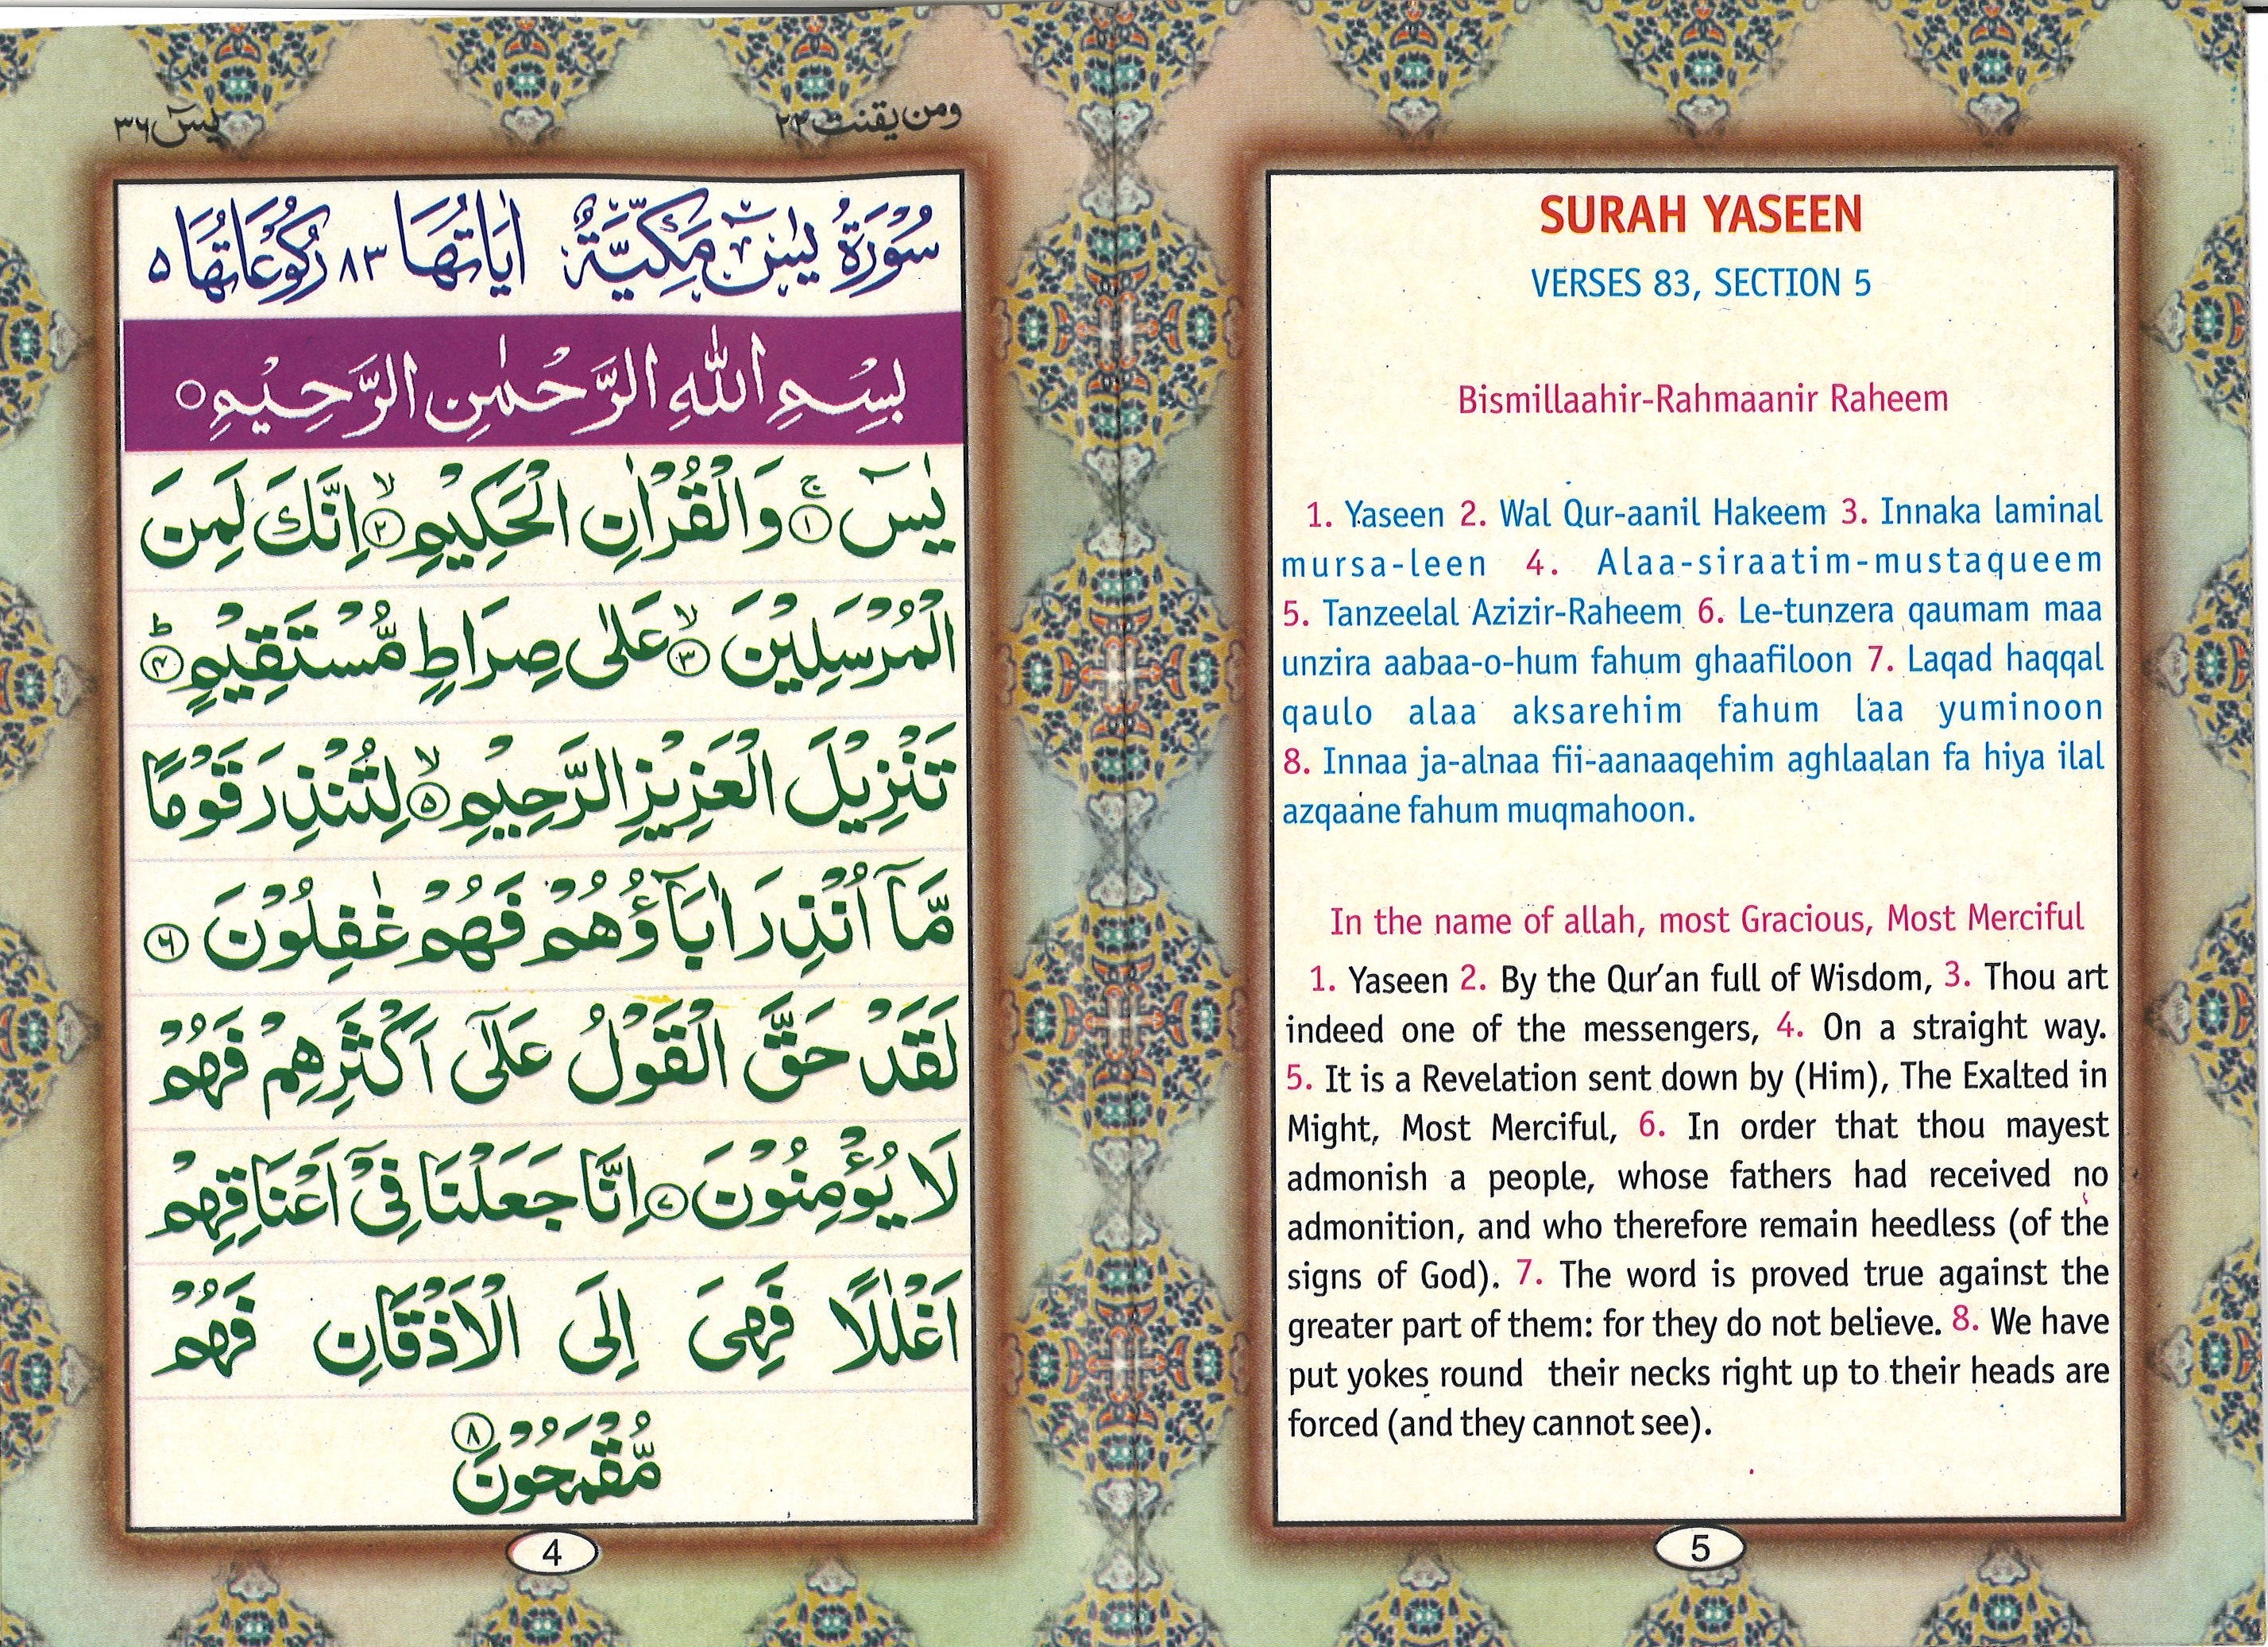 ومن یقنت ۲۲
یٰسٓ ۳۶
سُوْرَةُ یٰسٓ مَكِّيَّةٌ اٰيَاتُهَا ۸۳ رُكُوْعَاتُهَا ۵
بِسْمِ اللّٰهِ الرَّحْمٰنِ الرَّحِيْمِ ○
يٰسٓ ۚ﴿۱﴾ وَالْقُرْاٰنِ الْحَكِيْمِ ۙ﴿۲﴾ اِنَّكَ لَمِنَ
الْمُرْسَلِيْنَ ۙ﴿۳﴾ عَلٰى صِرَاطٍ مُّسْتَقِيْمٍ ؕ﴿۴﴾
تَنْزِيْلَ الْعَزِيْزِ الرَّحِيْمِ ۙ﴿۵﴾ لِتُنْذِرَ قَوْمًا
مَّآ اُنْذِرَ اٰبَآؤُهُمْ فَهُمْ غٰفِلُوْنَ ﴿۶﴾
لَقَدْ حَقَّ الْقَوْلُ عَلٰٓى اَكْثَرِهِمْ فَهُمْ
لَا يُؤْمِنُوْنَ ﴿۷﴾ اِنَّا جَعَلْنَا فِيْٓ اَعْنَاقِهِمْ
اَغْلٰلًا فَهِىَ اِلَى الْاَذْقَانِ فَهُمْ
مُّقْمَحُوْنَ ﴿۸﴾
4
SURAH YASEEN
VERSES 83, SECTION 5
Bismillaahir-Rahmaanir Raheem
1. Yaseen 2. Wal Qur-aanil Hakeem 3. Innaka laminal
mursa-leen 4. Alaa-siraatim-mustaqueem
5. Tanzeelal Azizir-Raheem 6. Le-tunzera qaumam maa
unzira aabaa-o-hum fahum ghaafiloon 7. Laqad haqqal
qaulo alaa aksarehim fahum laa yuminoon
8. Innaa ja-alnaa fii-aanaaqehim aghlaalan fa hiya ilal
azqaane fahum muqmahoon.
In the name of allah, most Gracious, Most Merciful
1. Yaseen 2. By the Qur'an full of Wisdom, 3. Thou art
indeed one of the messengers, 4. On a straight way.
5. It is a Revelation sent down by (Him), The Exalted in
Might, Most Merciful, 6. In order that thou mayest
admonish a people, whose fathers had received no
admonition, and who therefore remain heedless (of the
signs of God). 7. The word is proved true against the
greater part of them: for they do not believe. 8. We have
put yokes round their necks right up to their heads are
forced (and they cannot see).
5